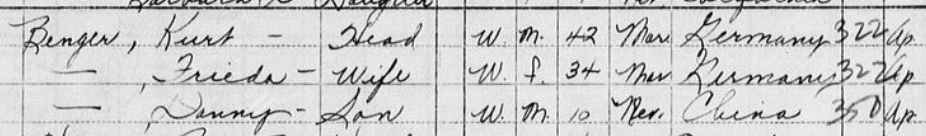 Renger, Kurt - Head W. M. 42 Mar. Germany 322 Ap.
— , Frieda - Wife W. f. 34 Mar Germany 322 Ap.
— , Danny - Son W. M. 10 Nev. China 350 Ap.